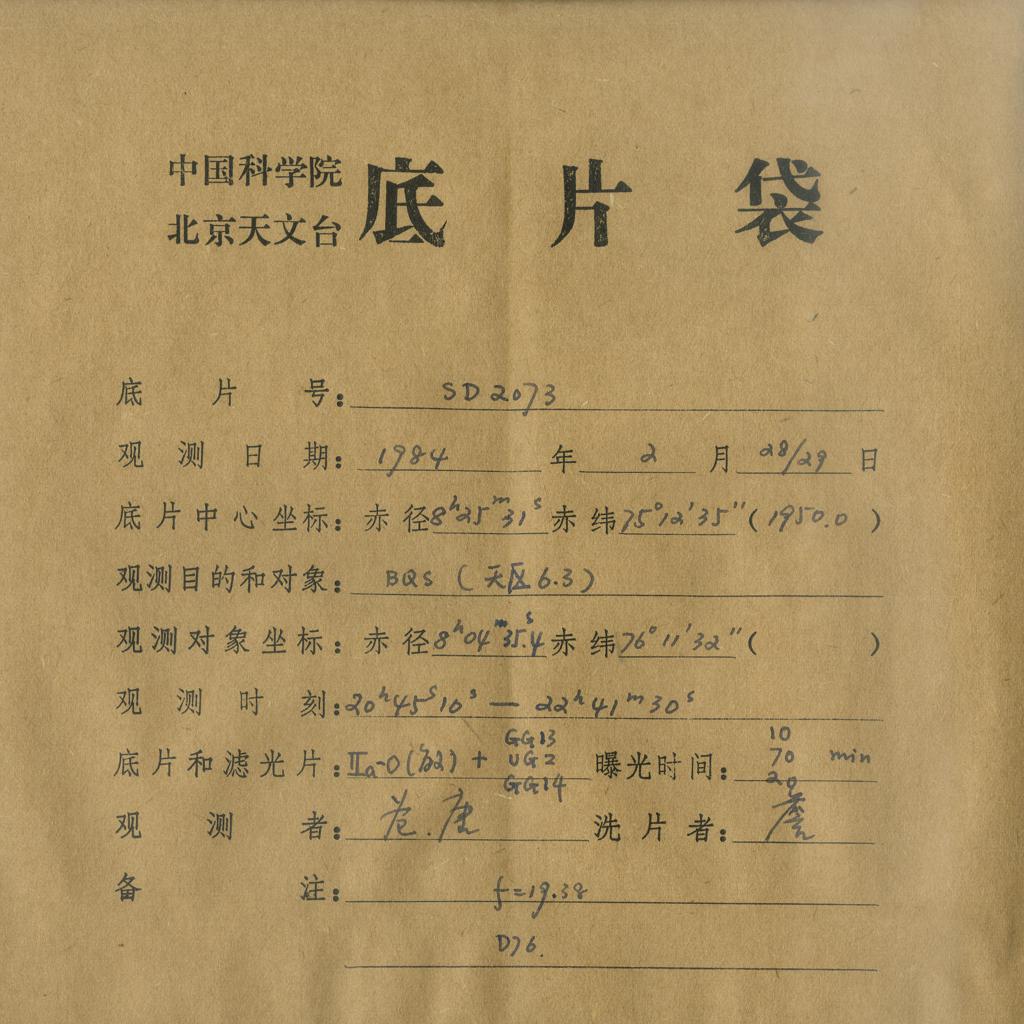 中国科学院
北京天文台 底片袋
底片号: SD2073
观测日期: 1984年2月28/29日
底片中心坐标: 赤径8ʰ25ᵐ31ˢ赤纬75°12′35″(1950.0)
观测目的和对象: BQS (天区6.3)
观测对象坐标: 赤径8ʰ04ᵐ35ˢ.4赤纬76°11′32″( )
观测时刻: 20ʰ45ˢ10ˢ — 22ʰ41ᵐ30ˢ
底片和滤光片: IIa-O() + GG13 UG2 GG14 曝光时间: 10 70 20 min
观测者: 洗片者:
备注: f=19.38
D76.